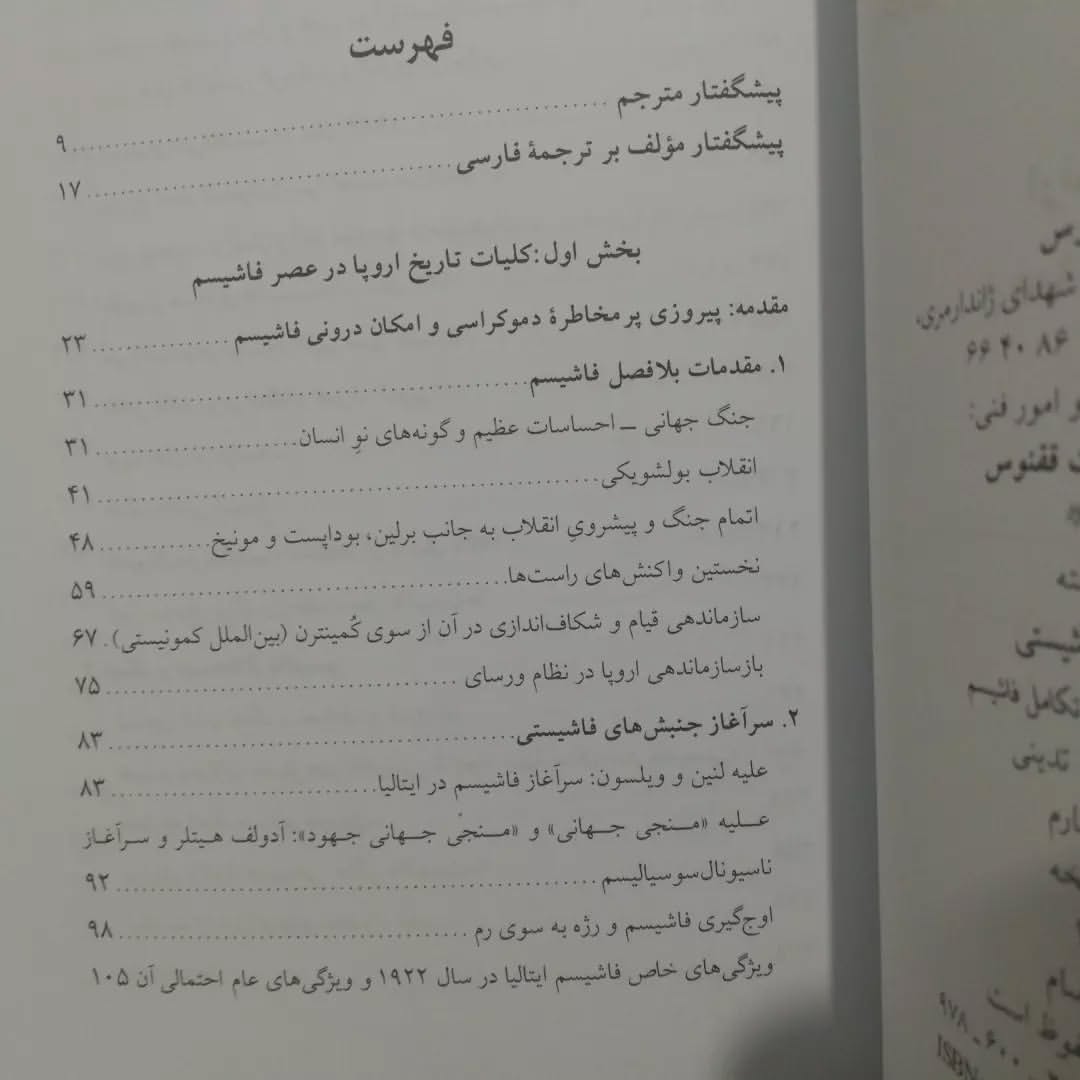 فهرست
پیشگفتار مترجم ........ ۹
پیشگفتار مؤلف بر ترجمهٔ فارسی ........ ۱۷
بخش اول: کلیات تاریخ اروپا در عصر فاشیسم
مقدمه: پیروزی پرمخاطرهٔ دموکراسی و امکان درونی فاشیسم ........ ۲۳
۱. مقدمات بلافصل فاشیسم ........ ۳۱
جنگ جهانی ــ احساسات عظیم و گونه‌های نوِ انسان ........ ۳۱
انقلاب بولشویکی ........ ۴۱
اتمام جنگ و پیشرویِ انقلاب به جانب برلین، بوداپست و مونیخ ........ ۴۸
نخستین واکنش‌های راست‌ها ........ ۵۹
سازماندهی قیام و شکاف‌اندازی در آن از سوی کُمینترن (بین‌الملل کمونیستی) . ۶۷
بازسازماندهی اروپا در نظام ورسای ........ ۷۵
۲. سرآغاز جنبش‌های فاشیستی ........ ۸۳
علیه لنین و ویلسون: سرآغاز فاشیسم در ایتالیا ........ ۸۳
علیه «منجی جهانی» و «منجی جهانی جهود»: آدولف هیتلر و سرآغاز
ناسیونال‌سوسیالیسم ........ ۹۲
اوج‌گیری فاشیسم و رژه به سوی رم ........ ۹۸
ویژگی‌های خاص فاشیسم ایتالیا در سال ۱۹۲۲ و ویژگی‌های عام احتمالی آن ۱۰۵
شهدای ژاندارمری،
۶۶ ۴۰ ۸۶
و امور فنی:
ققنوس
تکامل فاشیسم
تدینی
است
۹۷۸ ـ ۶۰۰
ISBN